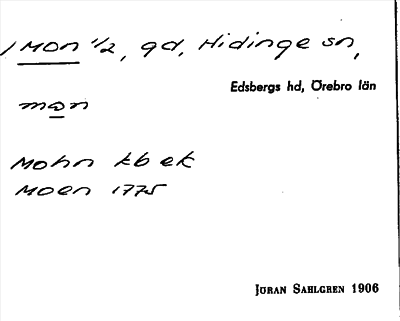 / Mon 1/2, gd, Hidinge sn,
Edsbergs hd, Örebro län
mɷn
Mohn kb ek
Moen 1775
JÖRAN SAHLGREN 1906